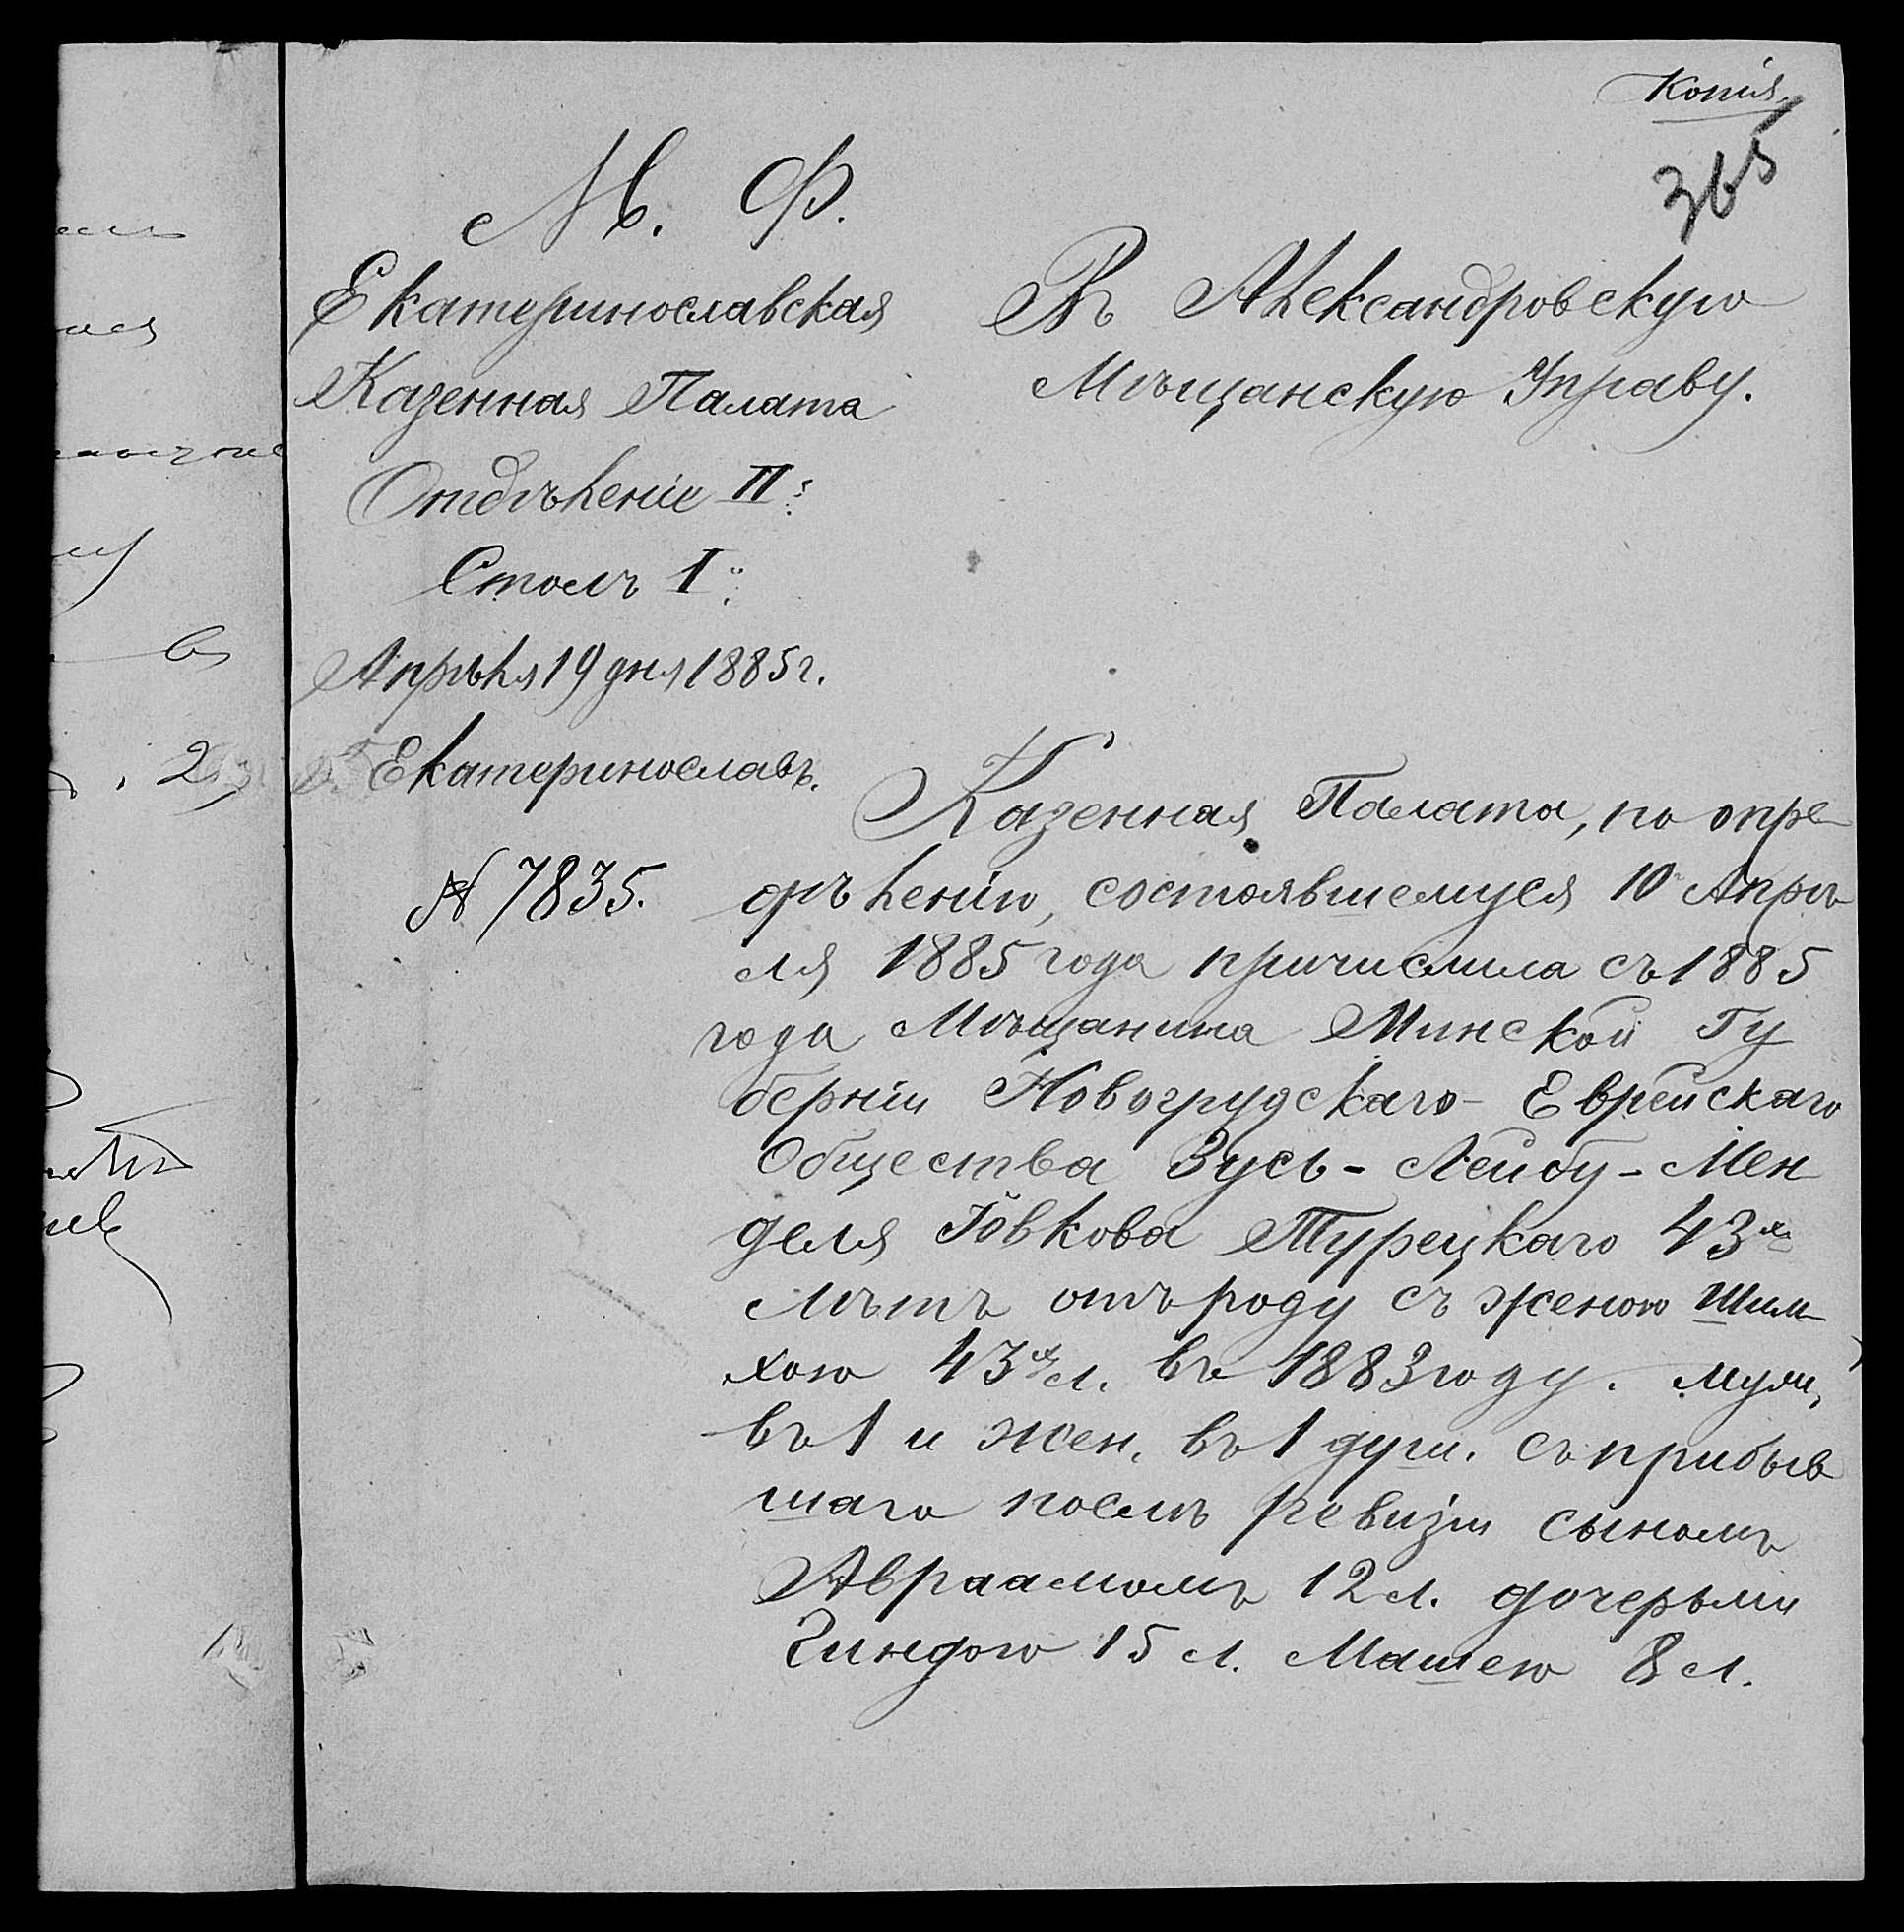 Копія.
365
М. Ф.
Екатеринославская
Казенная Палата
Отдѣленіе II.
Столъ I.
Апрѣля 19 дня 1885 г.
г. Екатеринославъ.
№ 7835.
Въ Александровскую
Мѣщанскую Управу.
Казенная Палата, по опре-
дѣленію, состоявшемуся 10 Апрѣ
ля 1885 года причислила съ 1885
года Мѣщанина Минской Гу
берніи Новогрудскаго Еврейскаго
Общества Зусь-Лейбу-Мен
деля Іовкова Турецкаго 43хъ
лѣтъ отъ роду съ женою Шим
хою 43хъ л. въ 1883 году. муж.
въ 1 и жен. въ 1 душ. съ прибыв
шаго послѣ ревизіи сыномъ
Авраамомъ 12 л. дочерьми
Гиндою 15 л. Машею 8 л.